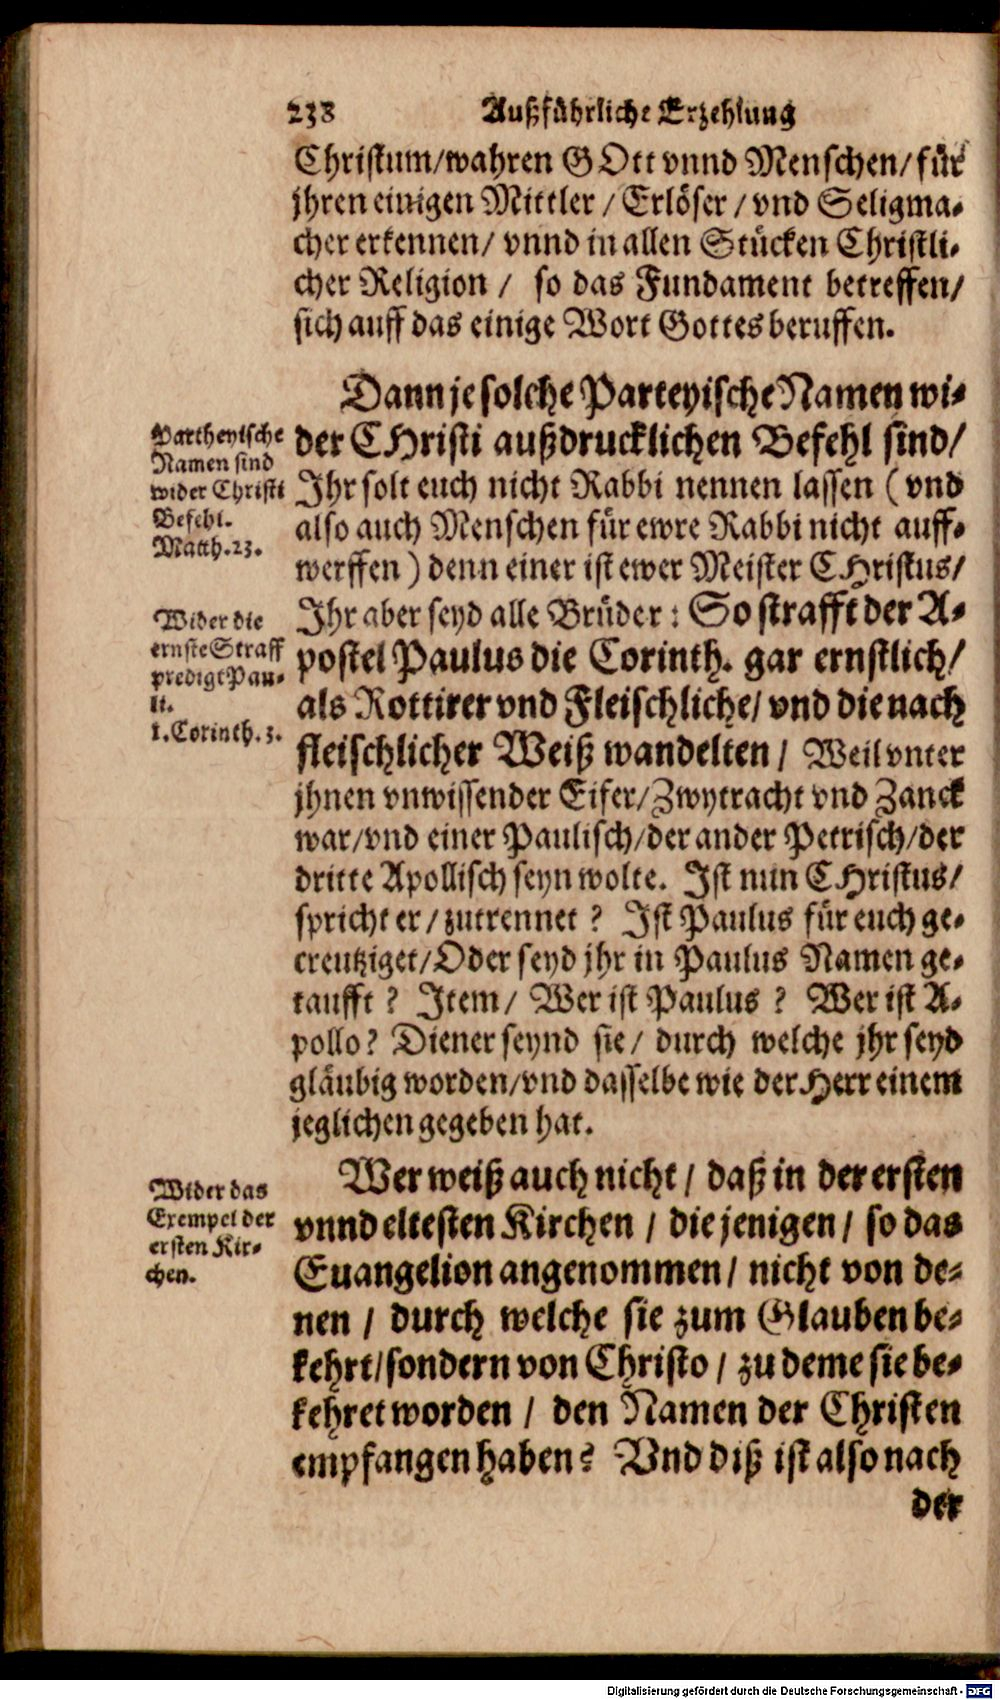 238 Außführliche Erzehlung
Christum/wahren GOtt vnnd Menschen/ für
jhren einigen Mittler / Erlöser / vnd Seligma-
cher erkennen/ vnnd in allen Stücken Christli-
cher Religion / so das Fundament betreffen/
sich auff das einige Wort Gottes beruffen.
Dann je solche Parteyische Namen wi-
der CHristi außdrucklichen Befehl sind/
Ihr solt euch nicht Rabbi nennen lassen (vnd
also auch Menschen für ewre Rabbi nicht auff-
werffen) denn einer ist ewer Meister CHristus/
Ihr aber seyd alle Brüder: So strafft der A-
postel Paulus die Corinth. gar ernstlich/
als Rottirer vnd Fleischliche/ vnd die nach
fleischlicher Weiß wandelten / Weil vnter
jhnen vnwissender Eifer/Zwytracht vnd Zanck
war/vnd einer Paulisch/der ander Petrisch/der
dritte Apollisch seyn wolte. Ist nun CHristus/
spricht er/ zutrennet? Ist Paulus für euch ge-
creutziget/Oder seyd jhr in Paulus Namen ge-
taufft? Item/ Wer ist Paulus? Wer ist A-
pollo? Diener seynd sie/ durch welche jhr seyd
gläubig worden/vnd dasselbe wie der Herr einem
jeglichen gegeben hat.
Wer weiß auch nicht / daß in der ersten
vnnd eltesten Kirchen / die jenigen / so das
Euangelion angenommen / nicht von de-
nen / durch welche sie zum Glauben be-
kehrt/sondern von Christo / zu deme sie be-
kehret worden / den Namen der Christen
empfangen haben? Vnd diß ist also nach
der
Partheyische
Namen sind
wider Christi
Befehl.
Matth.23.
Wider die
ernste Straff
predigt Pau-
li.
1.Corinth.3.
Wider das
Exempel der
ersten Kir-
chen.
Digitalisierung gefördert durch die Deutsche Forschungsgemeinschaft - DFG